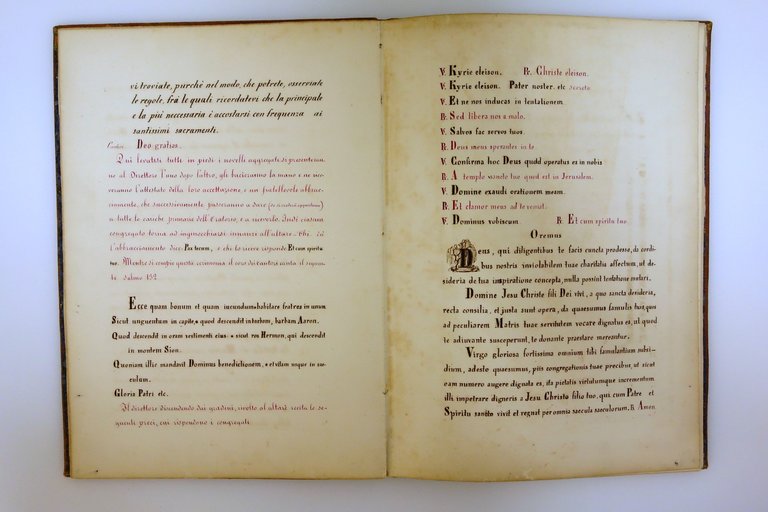 vi troviate, purchè nel modo, che potrete, osserviate
le regole, frà le quali ricordatevi che la principale
e la più necessaria è accostarvi con frequenza ai
santissimi sacramenti.
Deo gratias.
Quì levatisi tutti in piedi i novelli aggregati, si presenteran=
no al Direttore l'uno dopo l'altro, gli bacieranno la mano e ne rice=
veranno l'attestato della loro accettazione, e un fratellevole abbrac=
ciamento, che successivamente passeranno a dare
a tutte le cariche primarie dell'Oratorio, e a riceverlo. Indi ciascun
congregato torna ad inginocchiarsi innanzi all'altare. Chi dà
l'abbracciamento dice Pax tecum, e chi lo riceve risponde Et cum spiritu
tuo. Mentre si compie questa cerimonia il coro dei cantori canta il seguen=
te salmo 132.
Ecce quam bonum et quam iucundum habitare fratres in unum
Sicut unguentum in capite, quod descendit in barbam, barbam Aaron.
Quod descendit in oram vestimenti eius: sicut ros Hermon, qui descendit
in montem Sion.
Quoniam illic mandavit Dominus benedictionem, et vitam usque in sae=
culum.
Gloria Patri etc.
Il direttore discendendo dai gradini, rivolto al altare recita le se=
guenti preci, cui rispondono i congregati.
V. Kyrie eleison. R. Christe eleison.
V. Kyrie eleison. Pater noster. etc secreto
V. Et ne nos inducas in tentationem.
R. Sed libera nos a malo.
V. Salvos fac servos tuos.
R. Deus meus sperantes in te.
V. Confirma hoc Deus quod operatus es in nobis
R. A templo sancto tuo quod est in Jerusalem.
V. Domine exaudi orationem meam.
R. Et clamor meus ad te veniat.
V. Dominus vobiscum. R. Et cum spiritu tuo.
Oremus
Deus, qui diligentibus te facis cuncta prodesse, da cordi=
bus nostris inviolabilem tuae charitatis affectum, ut de=
sideria de tua inspiratione concepta, nulla possint tentatione mutari.
Domine Jesu Christe fili Dei vivi, a quo sancta desideria,
recta consilia, et justa sunt opera, da quaesumus famulis tuis, quos
ad peculiarem Matris tuae servitutem vocare dignatus es, ut quod
te adiuvante susceperunt, te donante praestare mereantur.
Virgo gloriosa fortissima omnium tibi famulantium subsi=
dium, adesto quaesumus, piis congregationis tuae precibus, ut sicut
eam numero augere dignata es, ita pietatis virtutumque incrementum
illi impetrare digneris a Jesu Christo filio tuo, qui cum Patre et
Spiritu sancto vivit et regnat per omnia saecula saeculorum. R. Amen.